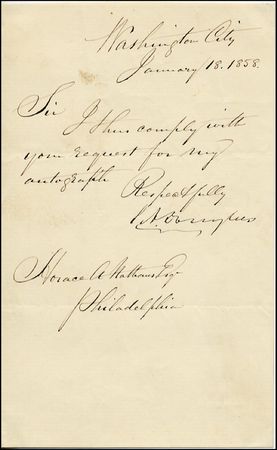 Washington City
January 18. 1858.
Sir
I thus comply with
your request for my
autograph
Respectfully
Horace A Nathans Esqr
Philadelphia